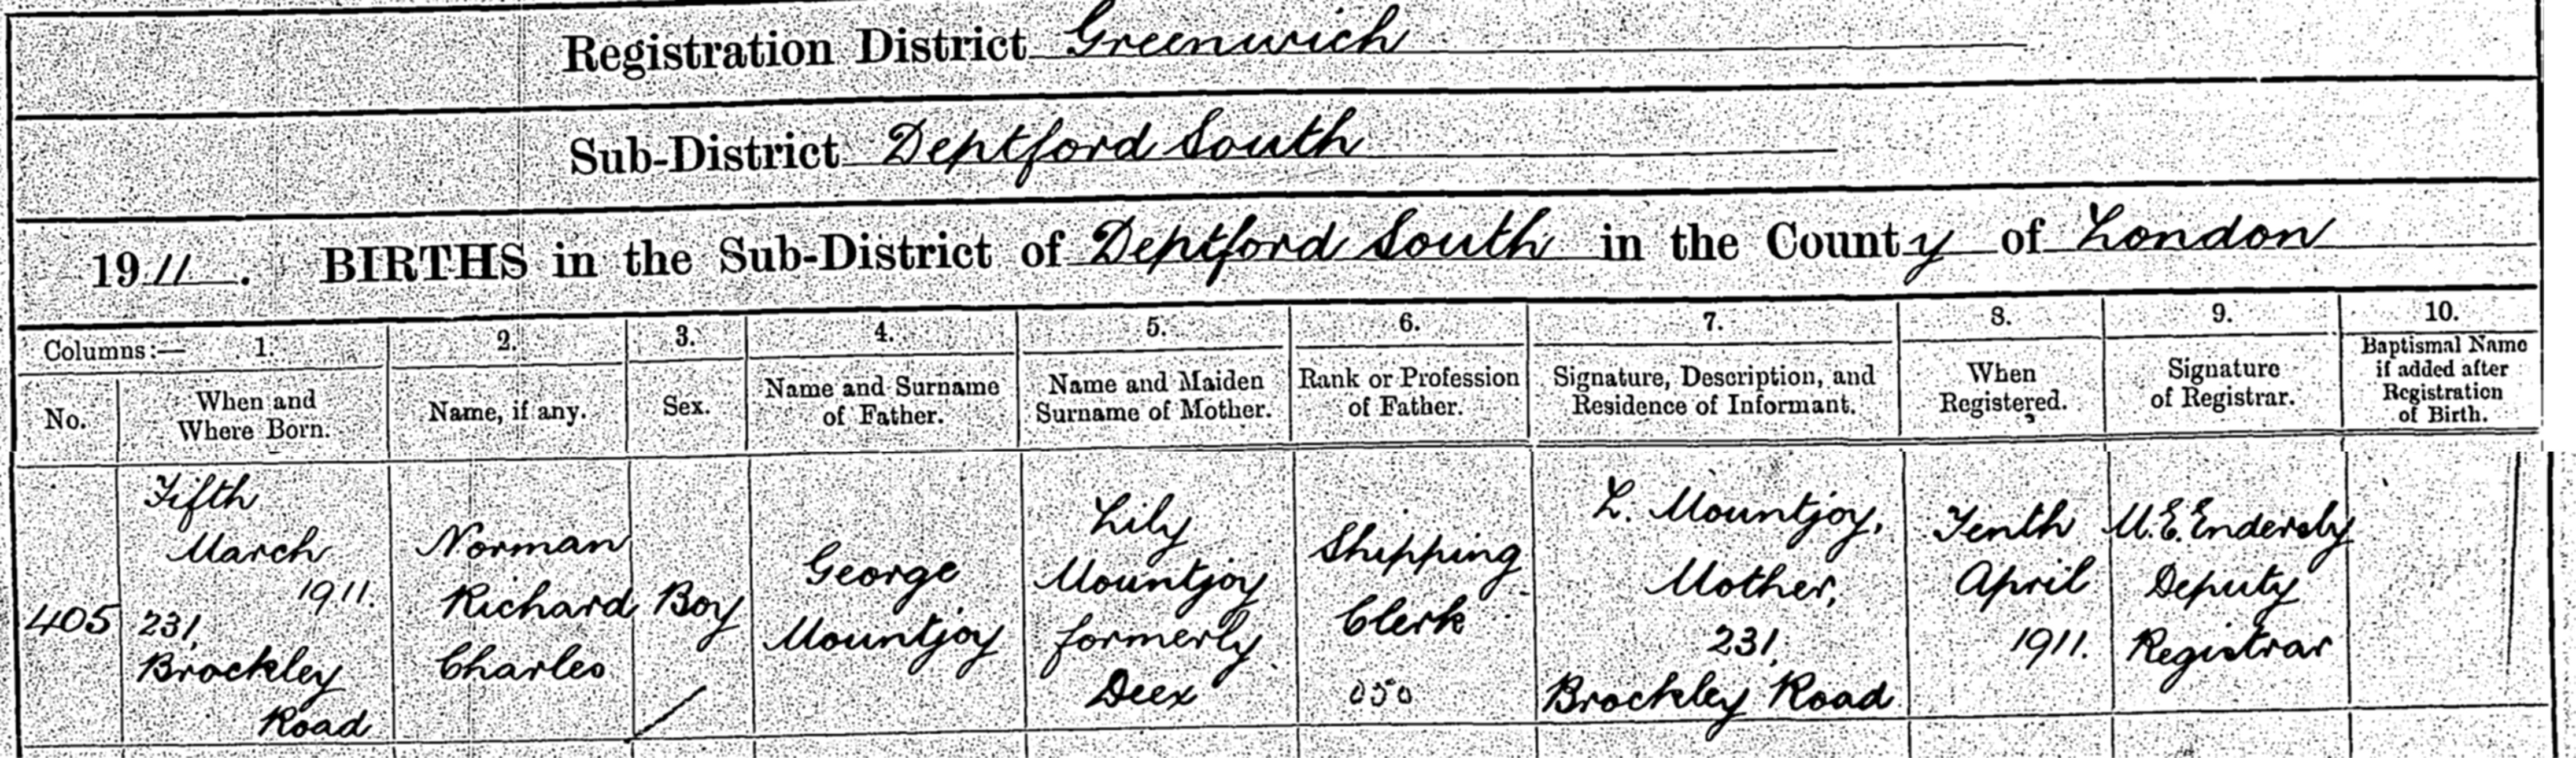 Registration District Greenwich
Sub-District Deptford South
1911. BIRTHS in the Sub-District of Deptford South in the County of London
Columns:— 1. 2. 3. 4. 5. 6. 7. 8. 9. 10.
No.
When and
Where Born.
Name, if any.
Sex.
Name and Surname
of Father.
Name and Maiden
Surname of Mother.
Rank or Profession
of Father.
Signature, Description, and
Residence of Informant.
When
Registered.
Signature
of Registrar.
Baptismal Name
if added after
Registration
of Birth.
405
Fifth
March
1911.
231,
Brockley
Road
Norman
Richard
Charles
Boy
George
Mountjoy
Lily
Mountjoy
formerly
Deex
Shipping
Clerk
050
L. Mountjoy,
Mother,
231,
Brockley Road
Tenth
April
1911.
M.E. Endersby
Deputy
Registrar